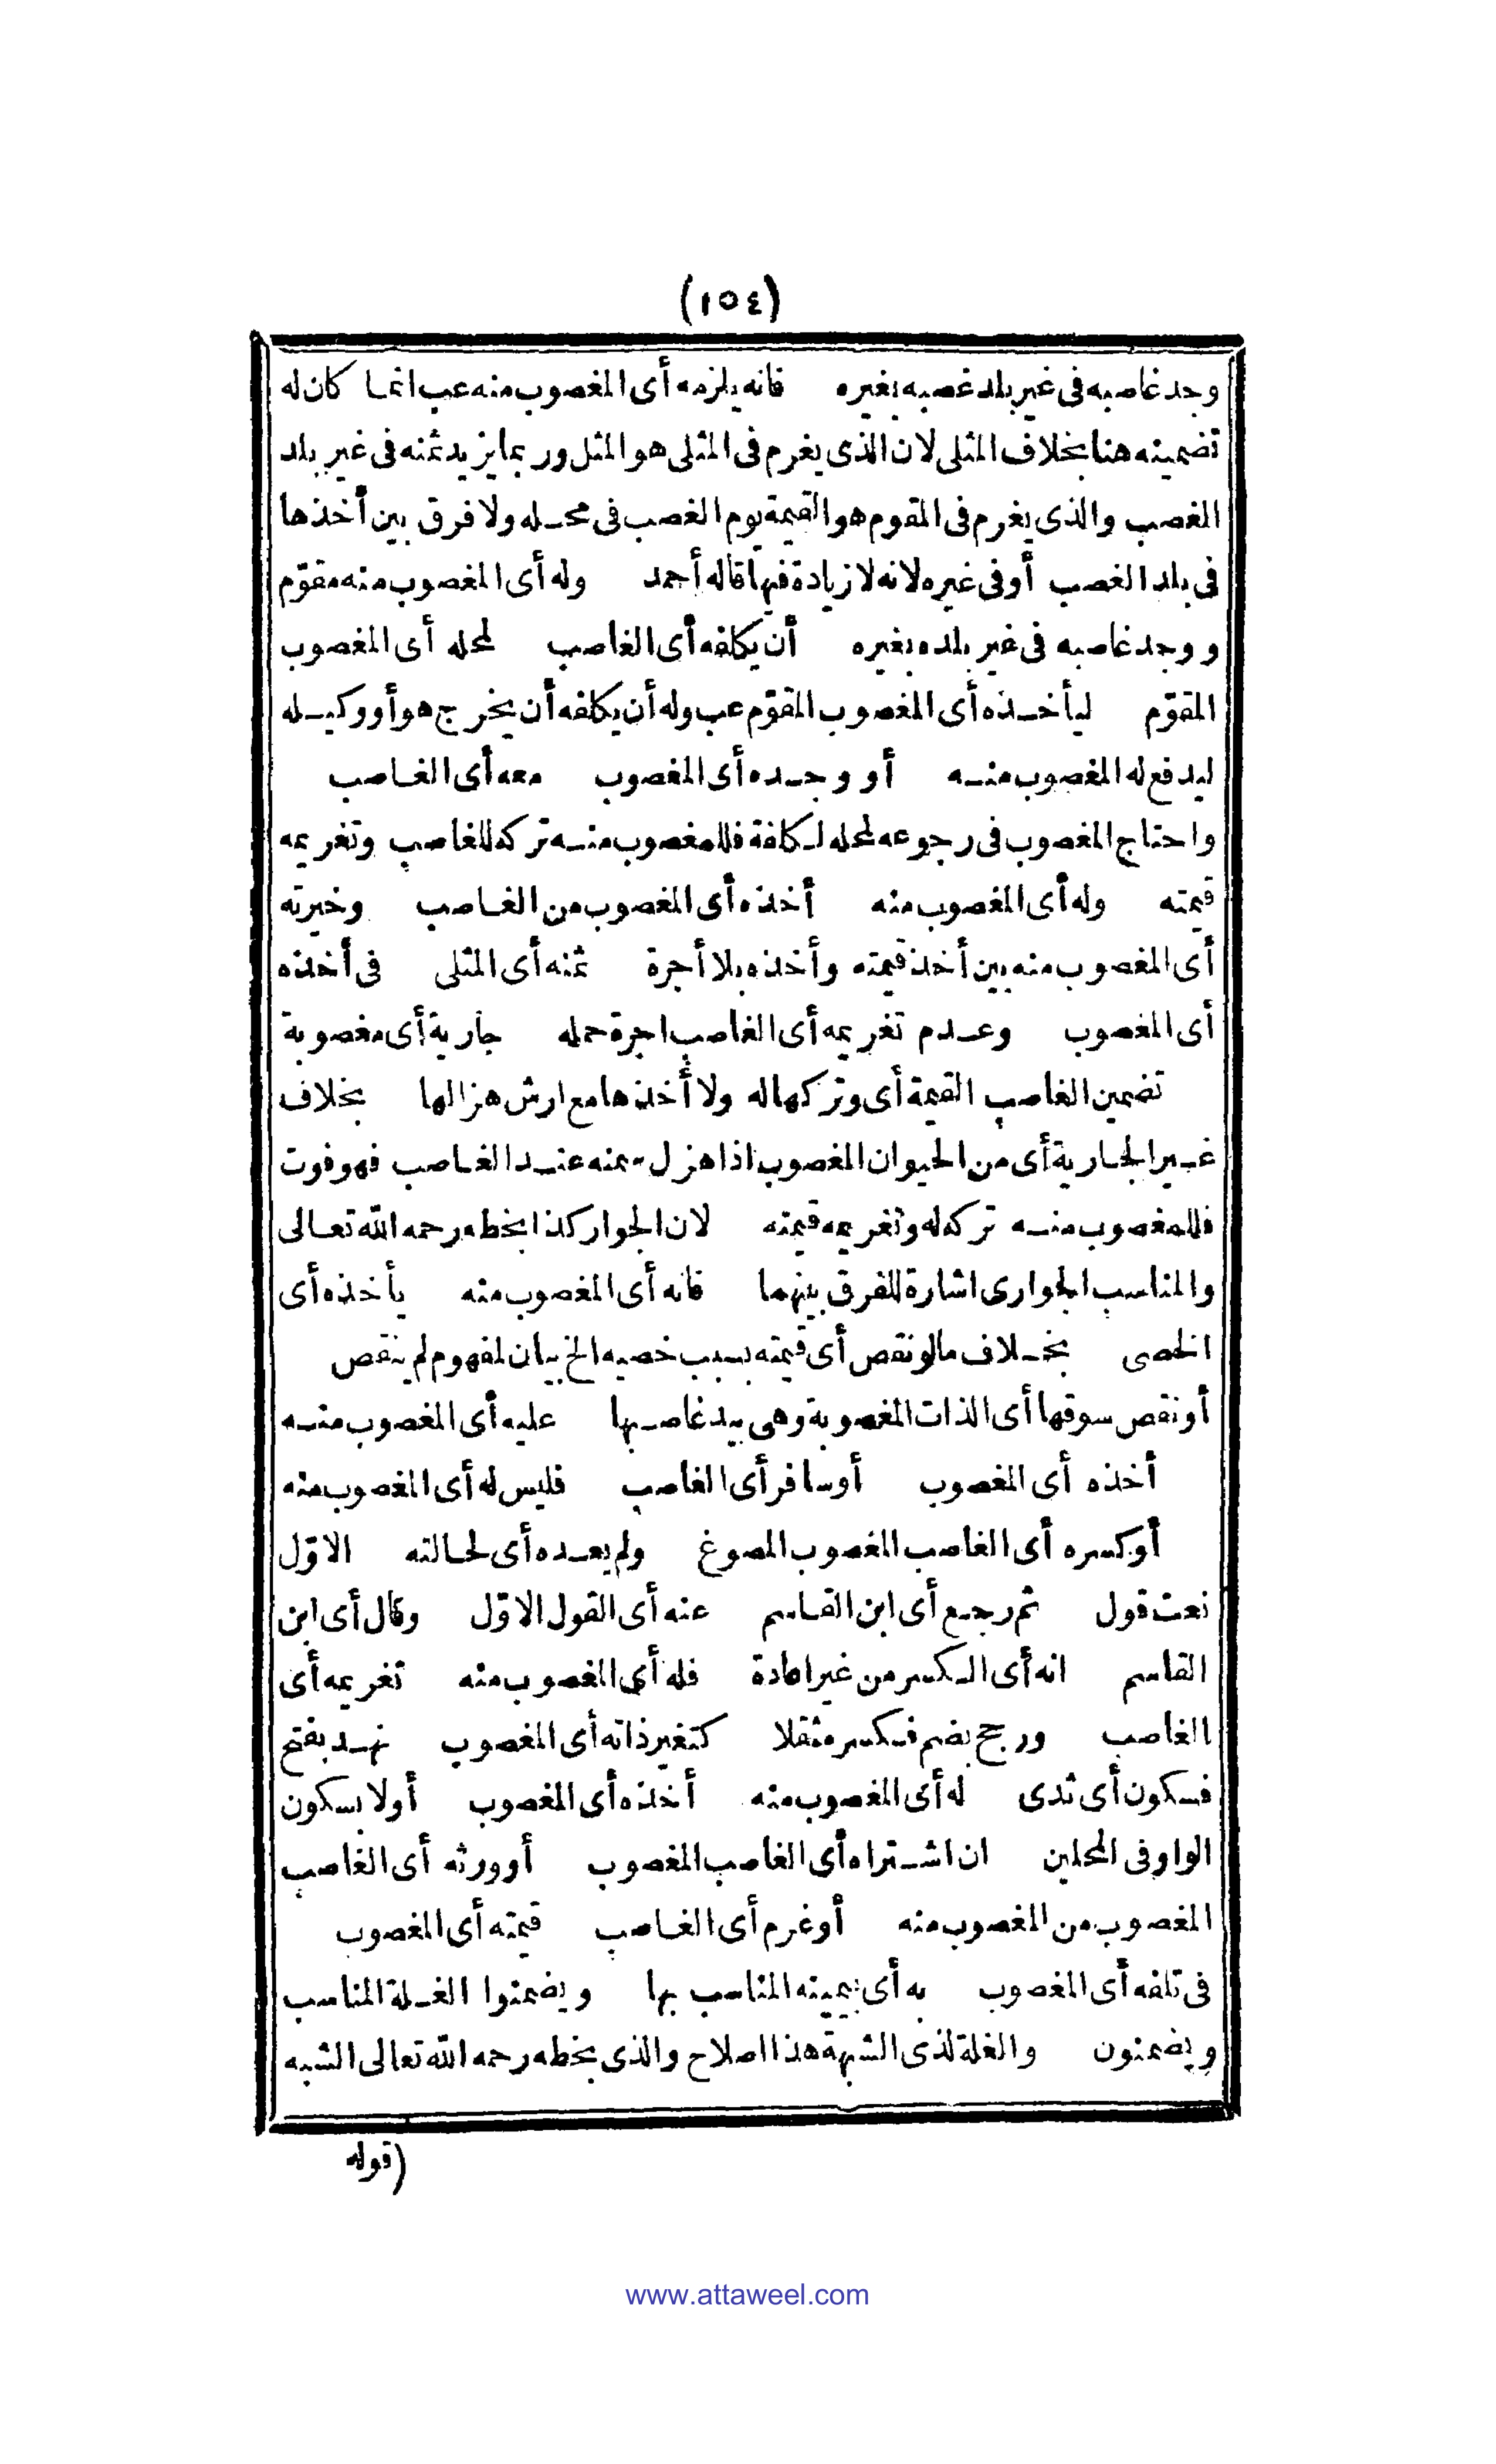 (١٥٤)
وجد غاصبه فى غير بلد غصبه بغيره فانه يلزمه أى المغصوب منه عب انما كان له
تضمينه هنا بخلاف المثلى لان الذى يغرم فى المثلى هو المثل وربما يزيد ثمنه فى غير بلد
الغصب والذى يغرم فى المقوم هو القيمة يوم الغصب فى محله ولا فرق بين أخذها
فى بلد الغصب أو فى غيره لانه لا زيادة فيها قاله أحمد وله أى المغصوب منه مقوّم
ووجد غاصبه فى غير بلده بغيره أن يكلفه أى الغاصب لمحله أى المغصوب
المقوّم ليأخذه أى المغصوب المقوّم عب وله أن يكلفه أن يخرج هو أو وكيله
ليدفع له المغصوب منه أو وجده أى المغصوب معه أى الغاصب
واحتاج المغصوب فى رجوعه لمحله لكلفة فللمغصوب منه تركه للغاصب وتغريمه
قيمته وله أى المغصوب منه أخذه أى المغصوب من الغاصب وخيرته
أى المغصوب منه بين أخذ قيمته وأخذه بلا أجرة ثمنه أى المثلى فى أخذه
أى المغصوب وعدم تغريمه أى الغاصب اجرة حمله جارية أى مغصوبة
تضمين الغاصب القيمة أى وتركها له ولا أخذها مع ارش هزالها بخلاف
غير الجارية أى من الحيوان المغصوب اذا هزل سمنه عند الغاصب فهو فوت
فللمغصوب منه تركه له وتغريمه قيمته لان الجوار كذا بخطه رحمه الله تعالى
والمناسب الجوارى اشارة للفرق بينهما فانه أى المغصوب منه يأخذه أى
الخصى بخلاف مالو نقص أى قيمته بسبب خصيه الخ بيان لمفهوم لم ينقص
أو نقص سوقها أى الذات المغصوبة وهى بيد غاصبها عليه أى المغصوب منه
أخذه أى المغصوب أو سافر أى الغاصب فليس له أى المغصوب منه
أو كسره أى الغاصب المغصوب المصوغ ولم يعده أى لحالته الاوّل
نعت قول ثم رجع أى ابن القاسم عنه أى القول الاوّل وقال أى ابن
القاسم انه أى الكسر من غير اعادة فله أى المغصوب منه تغريمه أى
الغاصب ورجح بضم فكسر مثقلا كتغير ذاته أى المغصوب نهد بفتح
فسكون أى ثدى له أى المغصوب منه أخذه أى المغصوب أولا بسكون
الواو فى المحلين ان اشتراه أى الغاصب المغصوب أو ورثه أى الغاصب
المغصوب من المغصوب منه أو غرم أى الغاصب قيمته أى المغصوب
فى تلفه أى المغصوب به أى بيمينه المناسب بها ويضمنوا الغلة المناسب
ويضمنون والغلة لذى الشبهة هذا اصلاح والذى بخطه رحمه الله تعالى الشبه
(قوله
www.attaweel.com